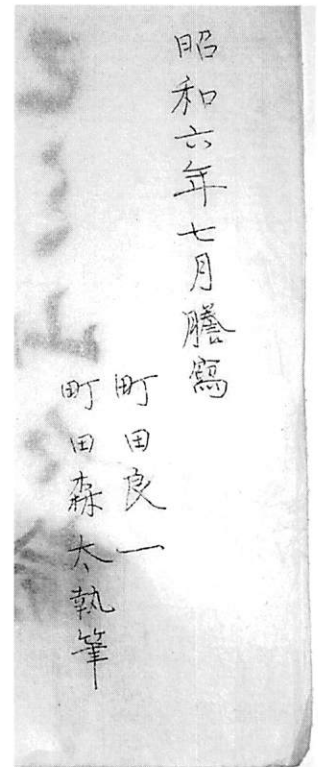 昭和六年七月謄寫
町田良一
町田森太執筆